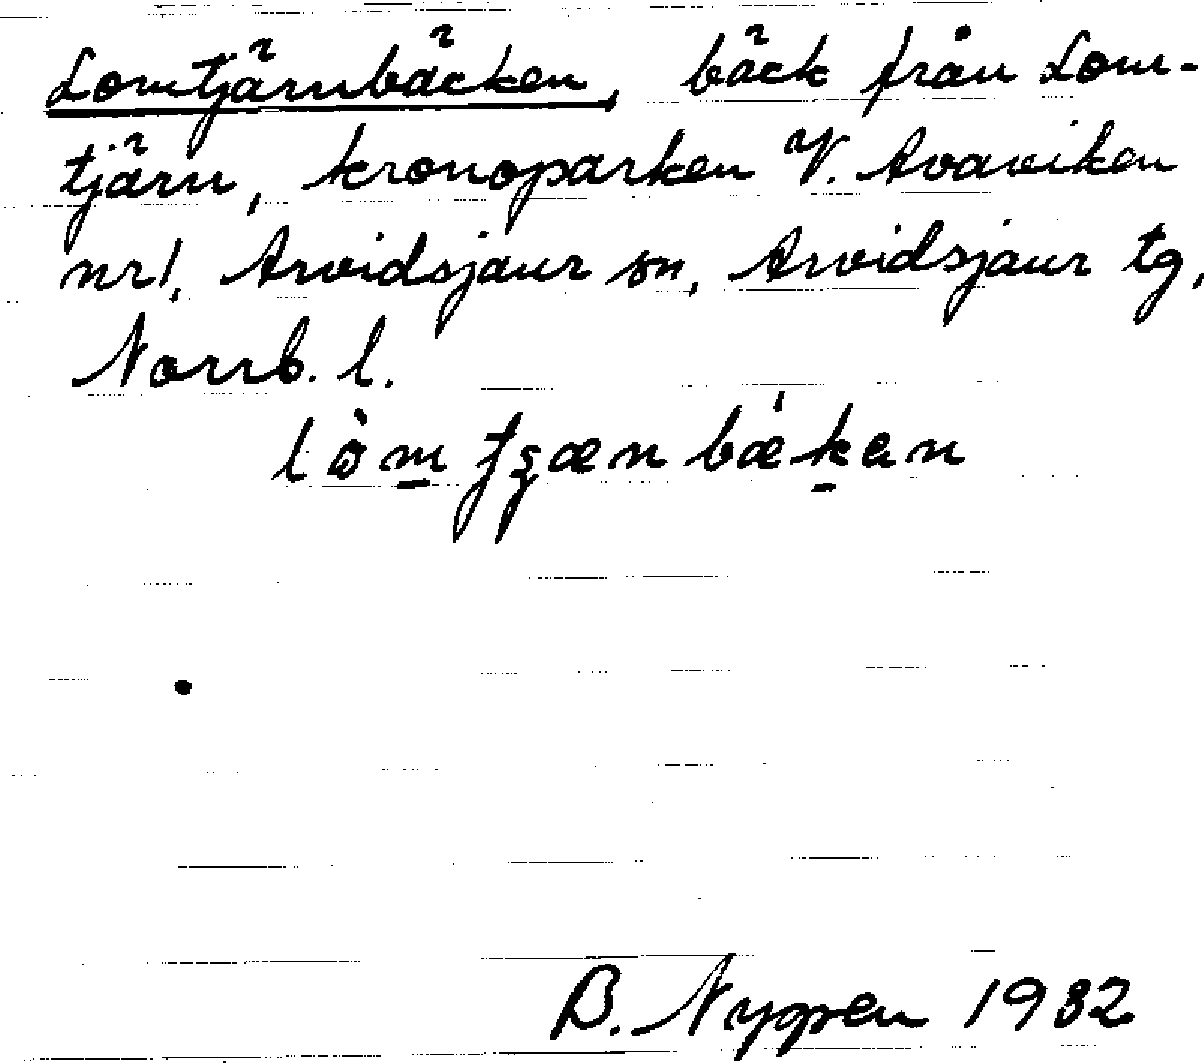 Lomtjärnbäcken, bäck från Lom-
tjärn, kronoparken V. Avaviken
nr 1, Arvidsjaur sn, Arvidsjaur tg,
Norrb. l.
B. Nygren 1932